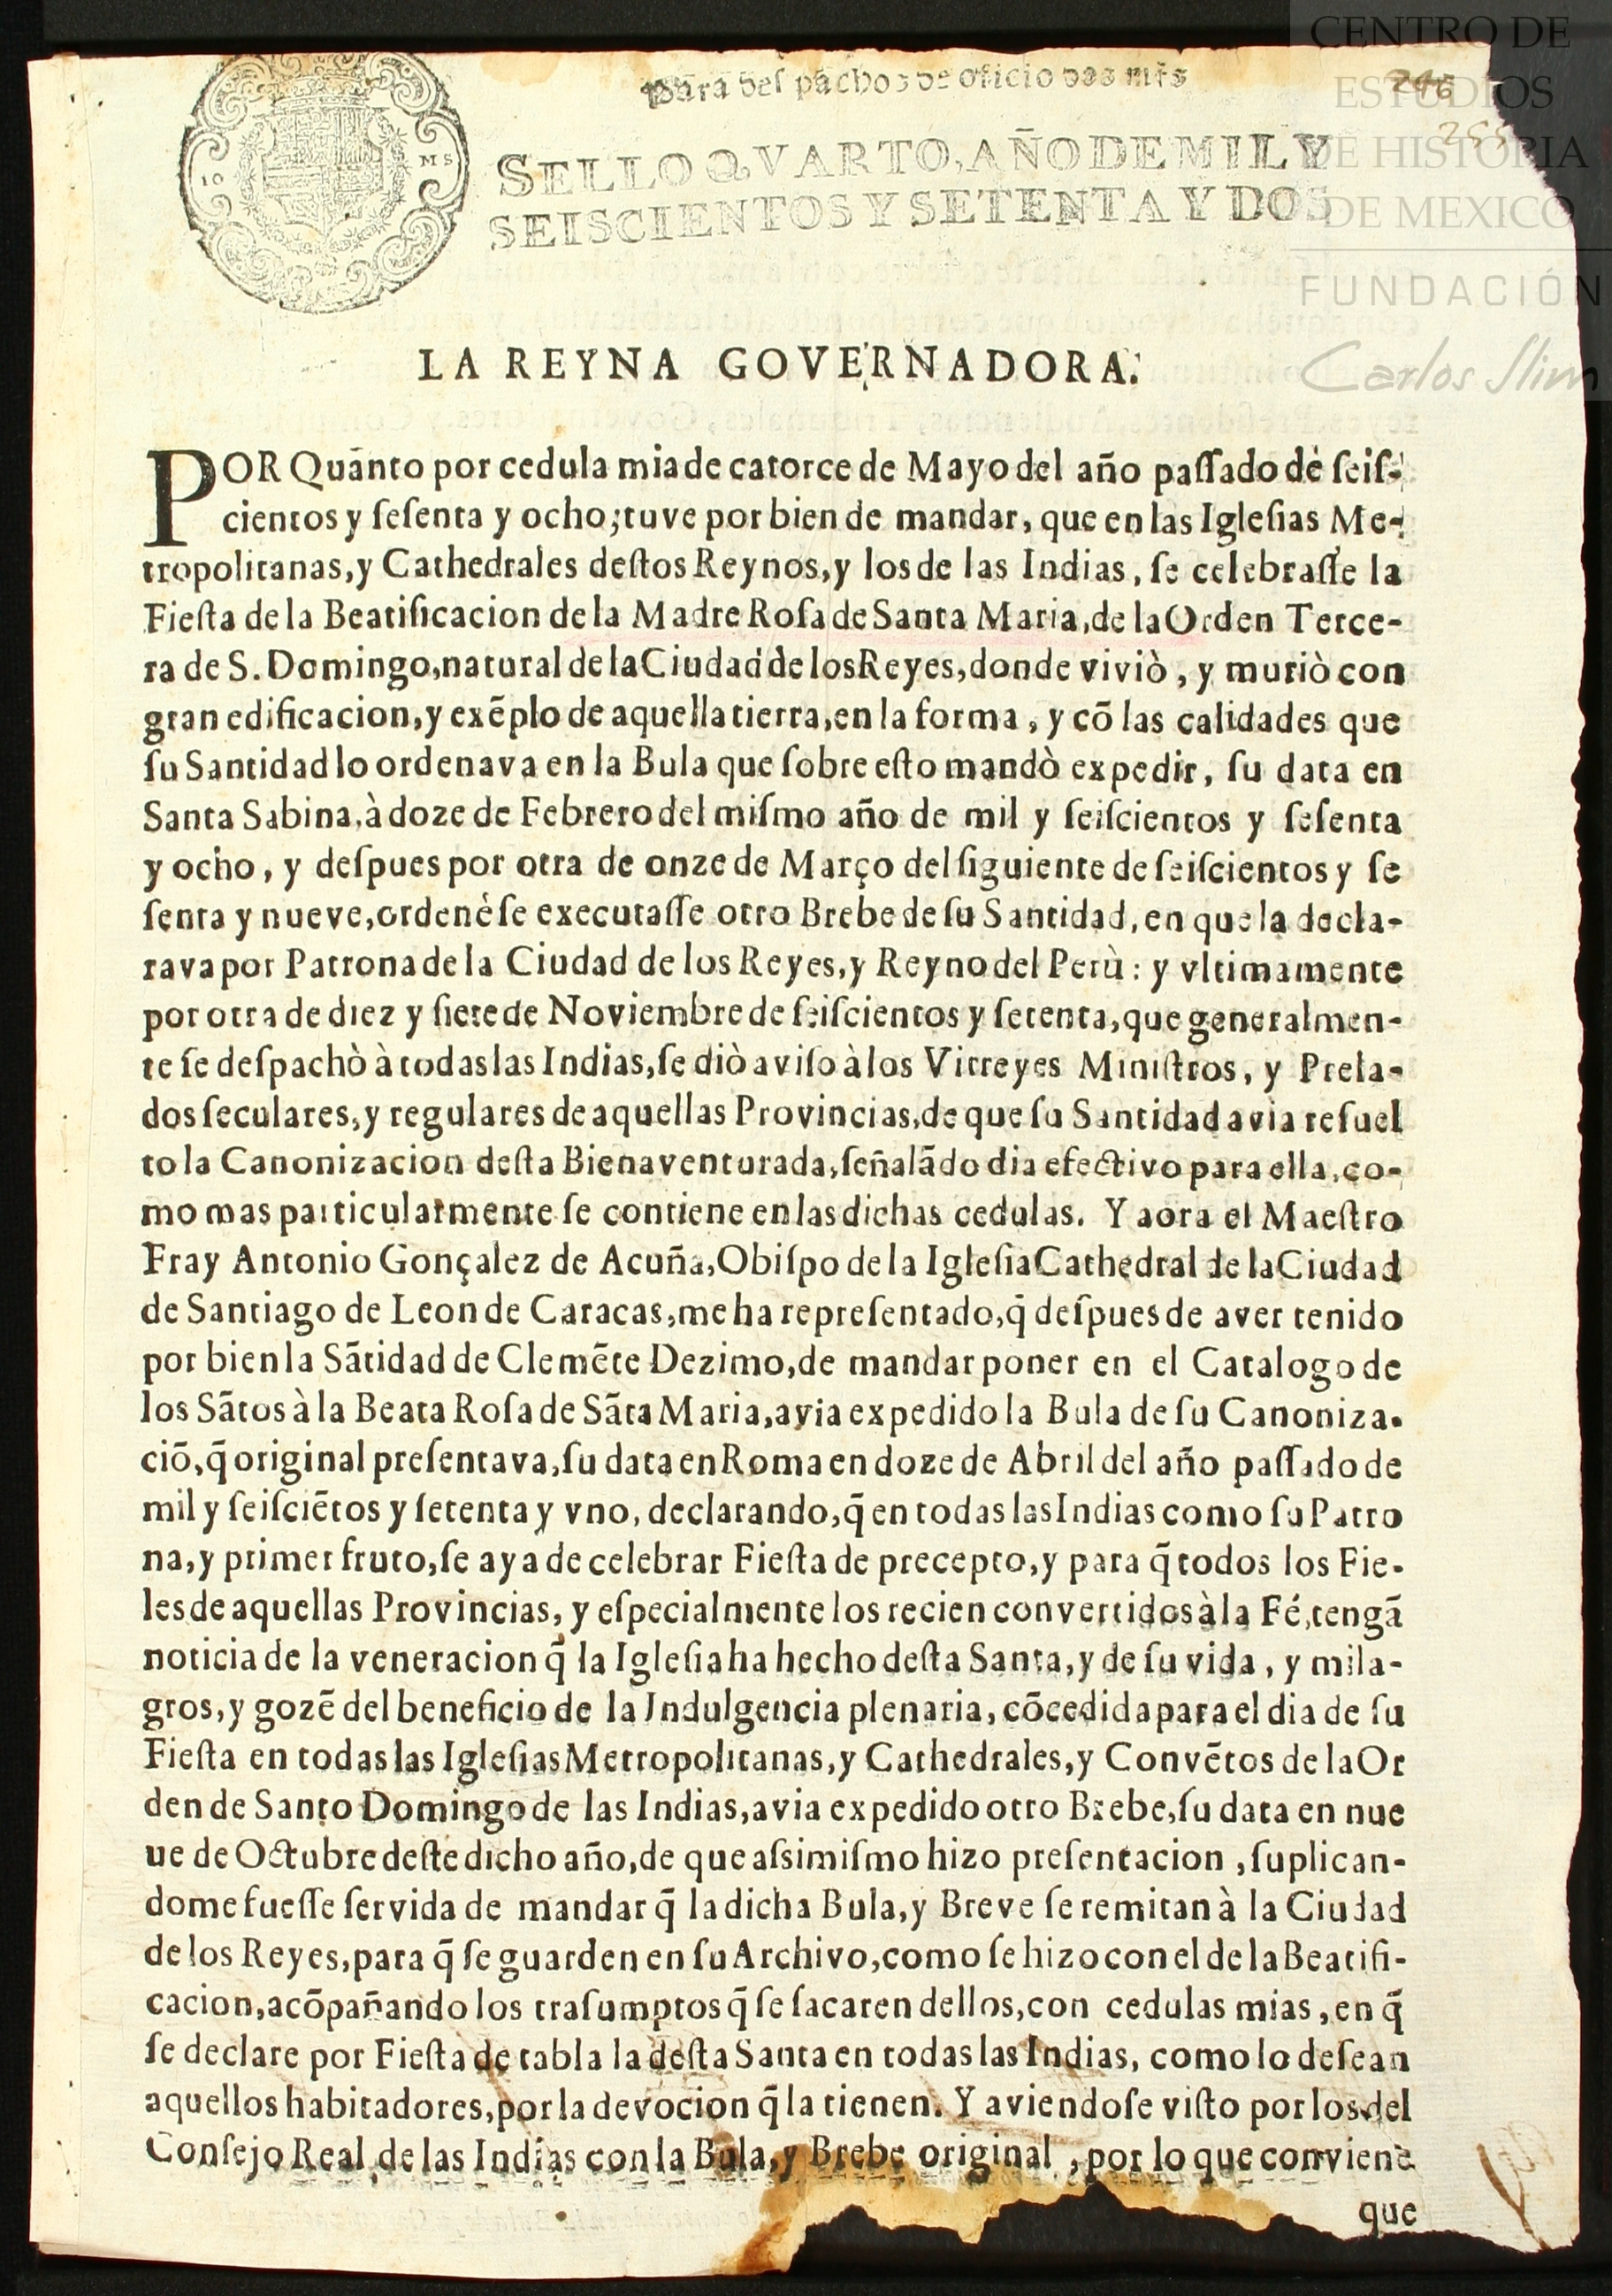 Para despachos de oficio dos mrs
SELLO QVARTO, AÑO DE MIL Y
SEISCIENTOS Y SETENTA Y DOS
10
MS
246
255
CENTRO DE
ESTUDIOS
DE HISTORIA
DE MEXICO
FUNDACIÓN
Carlos Slim
LA REYNA GOVERNADORA.
POR Quãnto por cedula mia de catorce de Mayo del año paſſado de ſeiſ-
cientos y ſeſenta y ocho, tuve por bien de mandar, que en las Igleſias Me-
tropolitanas, y Cathedrales deſtos Reynos, y los de las Indias, ſe celebraſſe la
Fieſta de la Beatificacion de la Madre Roſa de Santa Maria, de la Orden Terce-
ra de S. Domingo, natural de la Ciudad de los Reyes, donde viviò, y muriò con
gran edificacion, y exẽplo de aquella tierra, en la forma, y cõ las calidades que
ſu Santidad lo ordenava en la Bula que ſobre eſto mandò expedir, ſu data en
Santa Sabina, à doze de Febrero del miſmo año de mil y ſeiſcientos y ſeſenta
y ocho, y deſpues por otra de onze de Março del ſiguiente de ſeiſcientos y ſe
ſenta y nueve, ordenè ſe executaſſe otro Brebe de ſu Santidad, en que la decla-
rava por Patrona de la Ciudad de los Reyes, y Reyno del Perù: y vltimamente
por otra de diez y ſiete de Noviembre de ſeiſcientos y ſetenta, que generalmen-
te ſe deſpachò à todas las Indias, ſe diò aviſo à los Virreyes Miniſtros, y Prela-
dos ſeculares, y regulares de aquellas Provincias, de que ſu Santidad avia reſuel
to la Canonizacion deſta Bienaventurada, ſeñalãdo dia efectivo para ella, co-
mo mas particularmente ſe contiene en las dichas cedulas. Y aora el Maeſtro
Fray Antonio Gonçalez de Acuña, Obiſpo de la Igleſia Cathedral de la Ciudad
de Santiago de Leon de Caracas, me ha repreſentado, q̃ deſpues de aver tenido
por bien la Sãtidad de Clemẽte Dezimo, de mandar poner en el Catalogo de
los Sãtos à la Beata Roſa de Sãta Maria, avia expedido la Bula de ſu Canoniza-
ciõ, q̃ original preſentava, ſu data en Roma en doze de Abril del año paſſado de
mil y ſeiſciẽtos y ſetenta y vno, declarando, q̃ en todas las Indias como ſu Patro
na, y primer fruto, ſe aya de celebrar Fieſta de precepto, y para q̃ todos los Fie-
les de aquellas Provincias, y eſpecialmente los recien convertidos à la Fé, tengã
noticia de la veneracion q̃ la Igleſia ha hecho deſta Santa, y de ſu vida, y mila-
gros, y gozẽ del beneficio de la Indulgencia plenaria, cõcedida para el dia de ſu
Fieſta en todas las Igleſias Metropolitanas, y Cathedrales, y Convẽtos de la Or
den de Santo Domingo de las Indias, avia expedido otro Brebe, ſu data en nue
ue de Octubre deſte dicho año, de que aſsimiſmo hizo preſentacion, ſuplican-
dome fueſſe ſervida de mandar q̃ la dicha Bula, y Breve ſe remitan à la Ciudad
de los Reyes, para q̃ ſe guarden en ſu Archivo, como ſe hizo con el de la Beatifi-
cacion, acõpañando los traſumptos q̃ ſe ſacaren dellos, con cedulas mias, en q̃
ſe declare por Fieſta de tabla la deſta Santa en todas las Indias, como lo deſean
aquellos habitadores, por la devocion q̃ la tienen. Y aviendoſe viſto por los del
Conſejo Real de las Indias con la Bula, y Brebe original, por lo que conviene
que